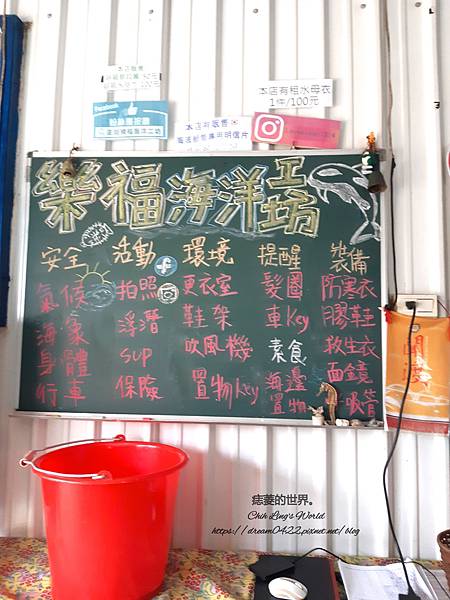 本店有租水母衣
1件/100元
本店有販售
Facebook
粉絲團按讚
樂福海洋工坊
安全 活動 環境 提醒 裝備
氣候 拍照 更衣室 髮圈 防寒衣
海象 浮潛 鞋架 車Key 膠鞋
身體 SUP 吹風機 素食 救生衣
行車 保險 置物Key 海邊置物 面鏡
呼吸管
痣菱的世界。
Chih Ling's World
https://dream0422.pixnet.net/blog